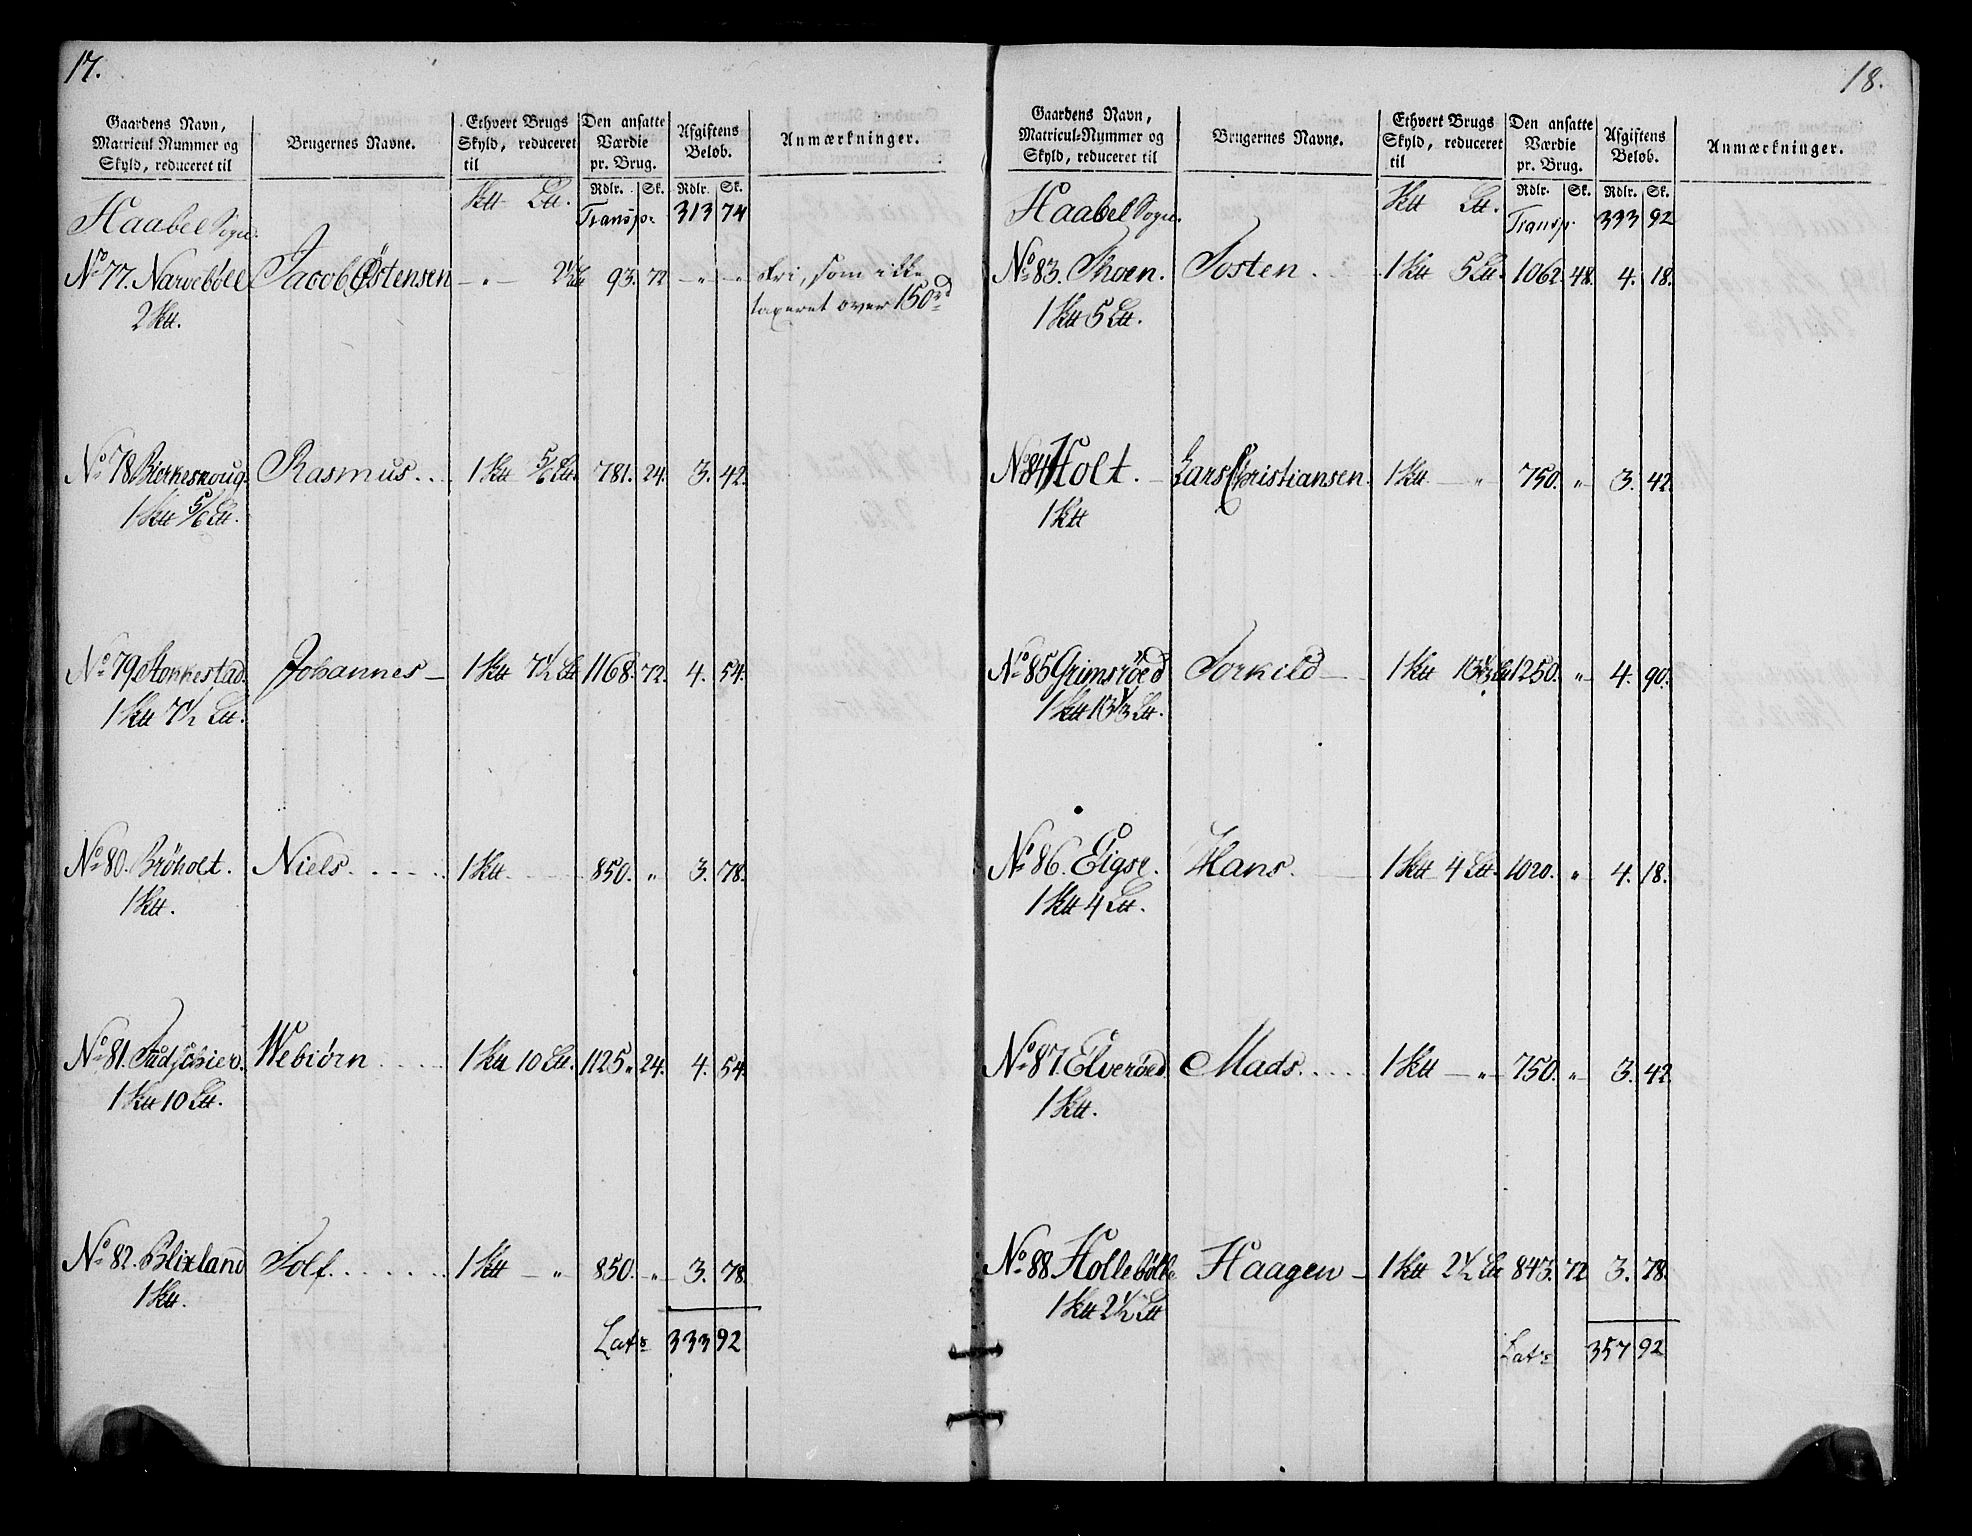 17.
Gaardens Navn, Matricul Nummer og Skyld, reduceret til | Brugernes Navne. | Ethvert Brugs Skyld, reduceret til | Den ansatte Værdie pr. Brug. | Afgiftens Beløb. | Anmærkninger.
Rdlr. Sk. Rdlr. Sk.
Haabel Sogn. Ktt Ltt. Transp: 313 74
No 77. Narvebøll Jacob Östensen - „ - 2½ 93. 72 - „ - „ fri, som ikke
2 Ktt. taxeret over 150 rd
No 78. Birkeskoug. Rasmus . . . 1 Ktt 5/6 Ltt. 781. 24. 3. 42.
1 Ktt 5/6 Ltt.
No 79. Stokkestad. Johannes – 1 Ktt 7½ Ltt 1168. 72. 4. 54.
1 Ktt 7½ Ltt.
No 80. Bröholt. Niels. . . . . 1 Ktt. 850. „ 3. 78.
1 Ktt.
No 81. Webiörn . . . . 1 Ktt 10 Ltt. 1125 „ 24. 4. 54.
1 Ktt 10 Ltt.
No 82. Blixland Tolf. . . . . . 1 Ktt – „ 850. – „ – 3. 78.
1 Ktt.
Lats 333 92
18.
Gaardens Navn, Matricul-Nummer og Skyld, reduceret til | Brugernes Navne. | Ethvert Brugs Skyld, reduceret til | Den ansatte Værdie pr. Brug. | Afgiftens Beløb. | Anmærkninger.
Rdlr. Sk. Rdlr. Sk.
Haabel Sogn. Ktt Ltt. Transp 333 92
No 83. Thoen. Tosten . 1 Ktt 5 Ltt. 1062. 48. 4. 18.
1 Ktt 5 Ltt.
No 84 Holt. – Lars Christiansen. 1 Ktt – „ 750. „ 3. 42.
1 Ktt
No 85 Grimsröed Torkild – 1 Ktt 13⅓ Ltt 1250. „ 4. 90.
1 Ktt 13⅓ Ltt.
No 86. Eigse. Hans. 1 Ktt 4 Ltt. 1020. „ 4. 18.
1 Ktt 4 Ltt.
No 87. Elveröed. Mads. . . . 1 Ktt – „ 750. „ 3. 42.
1 Ktt.
No 88 Holleböll Haagen – 1 Ktt 2½ Ltt 843. 72 3. 78.
1 Ktt 2½ Ltt
Lats 357 92